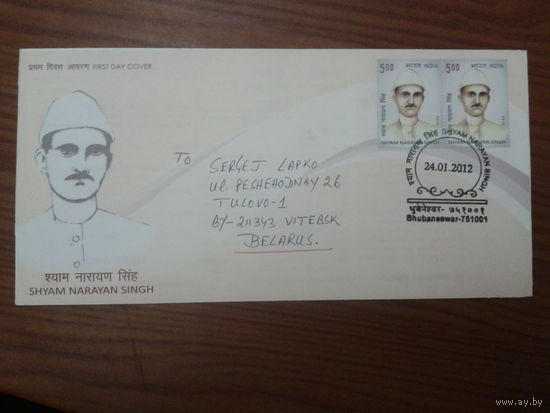 प्रथम दिवस आवरण FIRST DAY COVER
5.00 भारत INDIA
श्याम नारायण सिंह
SHYAM NARAYAN SINGH
5.00 भारत INDIA
श्याम नारायण सिंह
SHYAM NARAYAN SINGH
श्याम नारायण सिंह SHYAM NARAYAN SINGH
24.01.2012
भुबनेश्वर- ७५१००१
Bhubaneswar-751001
TO
SERGEJ LAPKO
UL. PESHEHODNAY 26
TULOVO-1
BY-211343 VITEBSK
BELARUS.
श्याम नारायण सिंह
SHYAM NARAYAN SINGH
www.ay.by